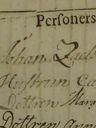 Personers
Johan
Hustrun Ca
Dottren Marg
Dottren Anna